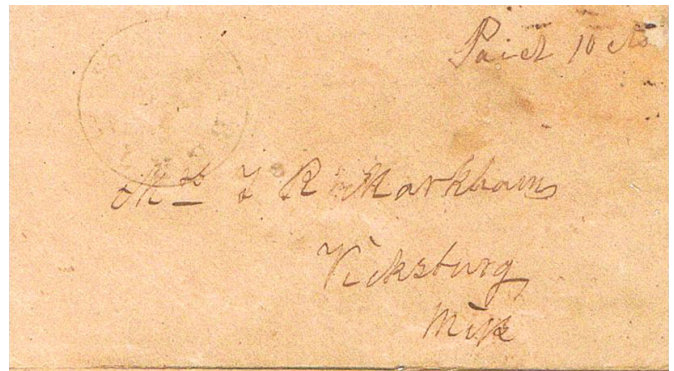 Paid 10 cts
Mrs T R Markham
Vicksburg
Miss